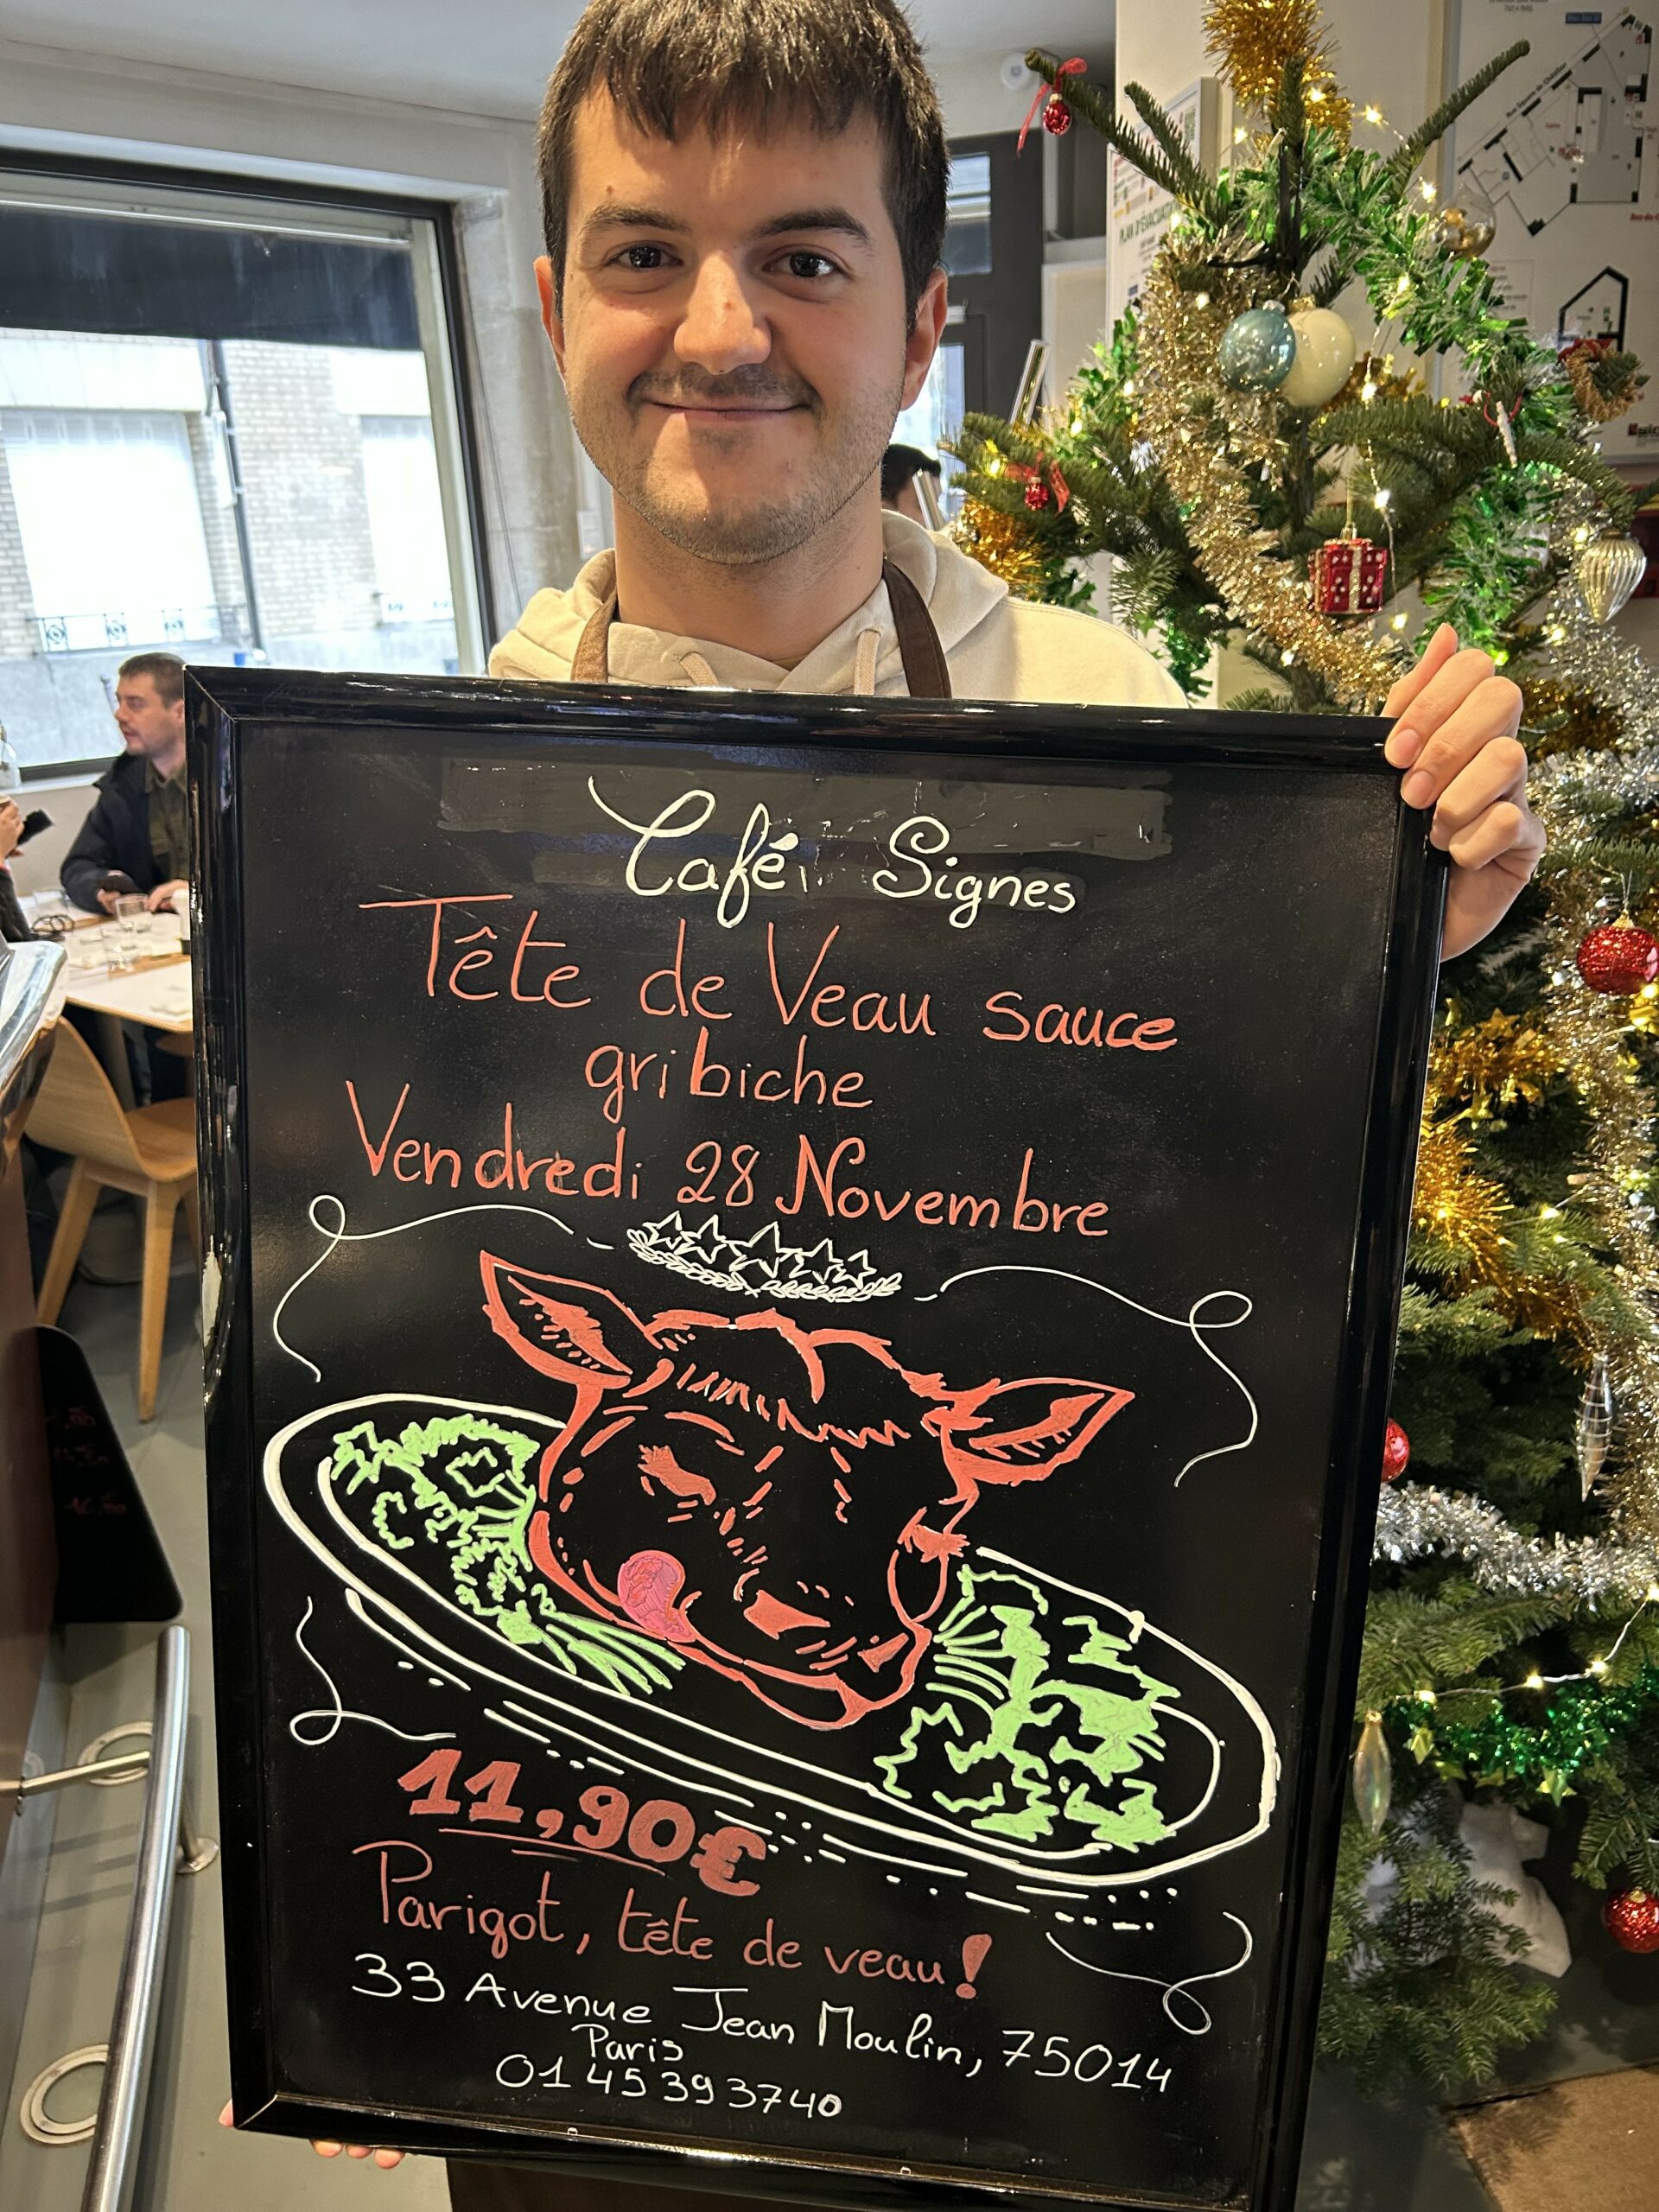 PLAN D'ÉVACUATI
Café Signes
Tête de Veau sauce
gribiche
Vendredi 28 Novembre
11,90€
Parigot, tête de veau!
33 Avenue Jean Moulin, 75014
Paris
01 45 39 37 40